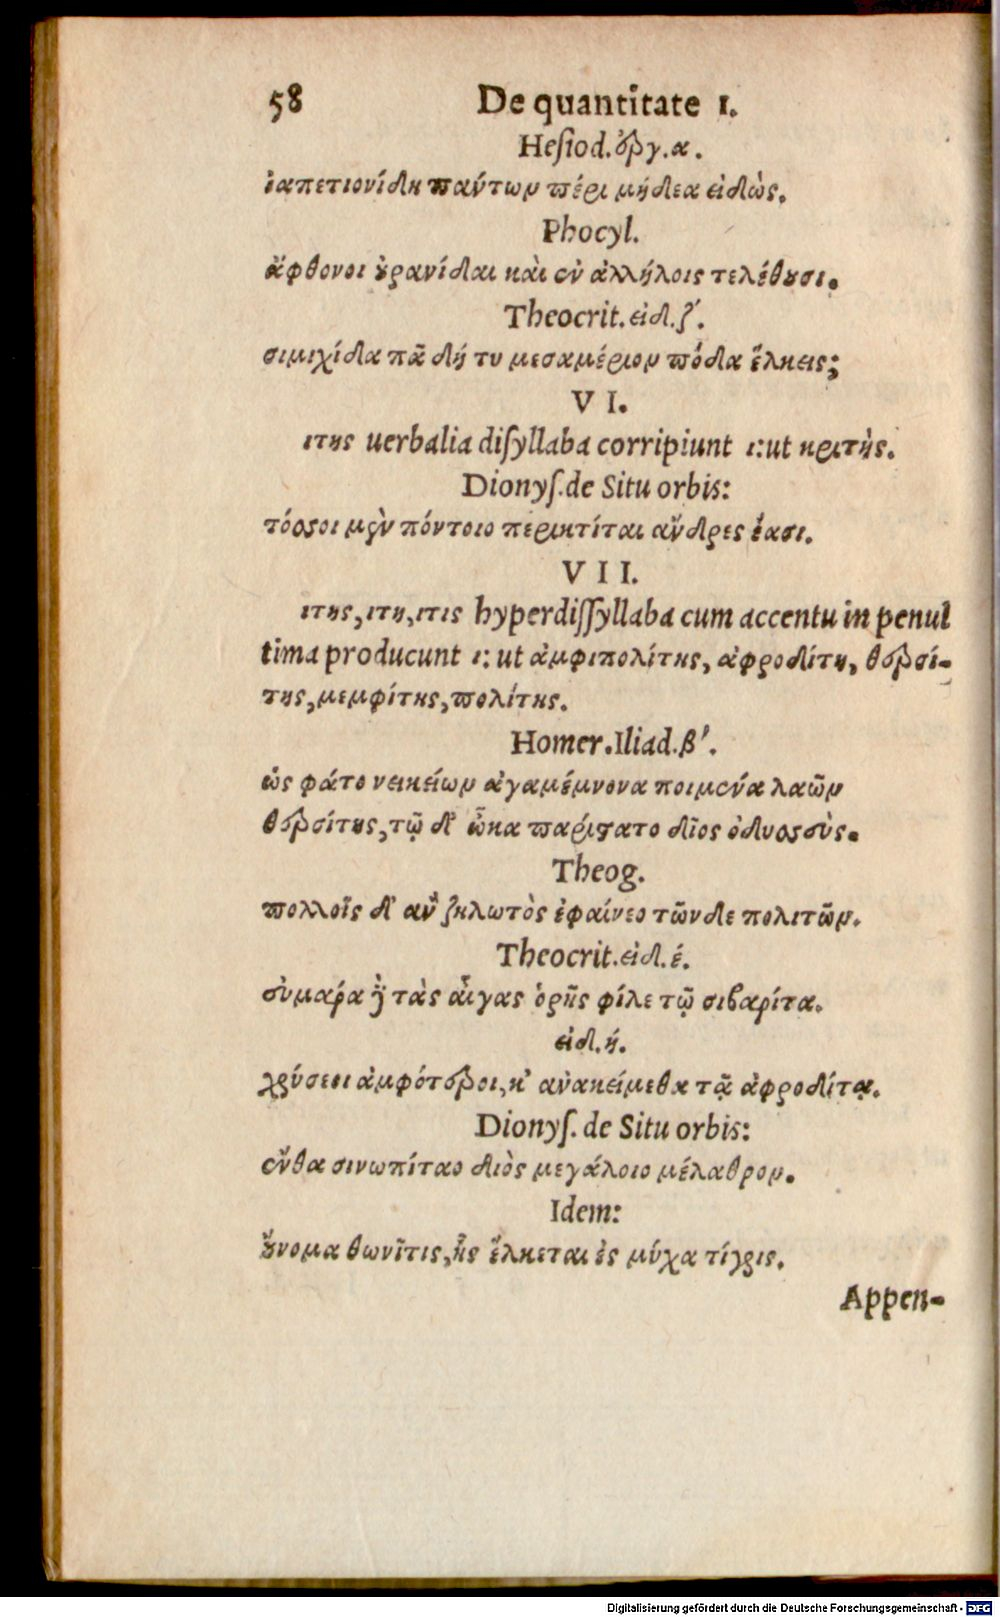 58 De quantitate ι.
Hesiod. ἐργ. α.
ἰαπετιονίδη πάντων πέρι μήδεα εἰδὼς.
Phocyl.
ἄφθονοι οὐρανίδαι καὶ ἐν ἀλλήλοις τελέθουσι.
Theocrit. εἰδ. ζ'.
σιμιχίδα πᾶ δή τυ μεσαμέριον πόδα ἕλκεις;
VI.
ιτης uerbalia disyllaba corripiunt ι: ut κριτὴς.
Dionys. de Situ orbis:
τόσσοι μὲν πόντοιο περικτίται ἄνδρες ἔασι.
VII.
ιτης, ιτη, ιτις hyperdissyllaba cum accentu in penul
tima producunt ι: ut ἀμφιπολίτης, ἀφροδίτη, θερσί-
της, μεμφίτης, πολίτης.
Homer. Iliad. β'.
ὡς φάτο νεικείων ἀγαμέμνονα ποιμένα λαῶν
θερσίτης, τῷ δ' ὦκα παρίστατο δῖος ὀδυσσὺς.
Theog.
πολλοῖς δ' ἂν ζηλωτὸς ἐφαίνεο τῶνδε πολιτῶν.
Theocrit. εἰδ. έ.
σύμαρα γὰρ τὰς αἶγας ὁρῆς φίλε τῷ σιβαρίτα.
εἰδ. ή.
χρύσεοι ἀμφότεροι, κ' ἀνακείμεθα τᾷ ἀφροδίτᾳ.
Dionys. de Situ orbis:
ἔνθα σινωπίταο διὸς μεγάλοιο μέλαθρον.
Idem:
οὔνομα θωνῖτις, ἧς ἕλκεται ἐς μύχα τίγρις.
Appen-
Digitalisierung gefördert durch die Deutsche Forschungsgemeinschaft - DFG